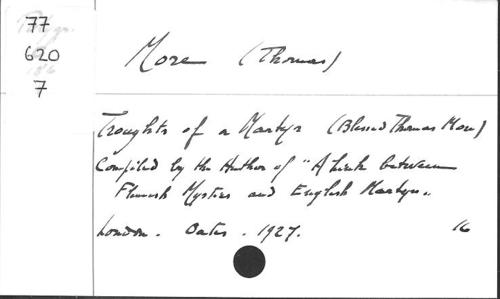 77
620
7
More (Thomas)
Troughts of a Martyr (Blessed Thomas More)
Compiled by the Author of "A link between
Flemish Mystics and English Martyrs.
London. Oates. 1927. 16